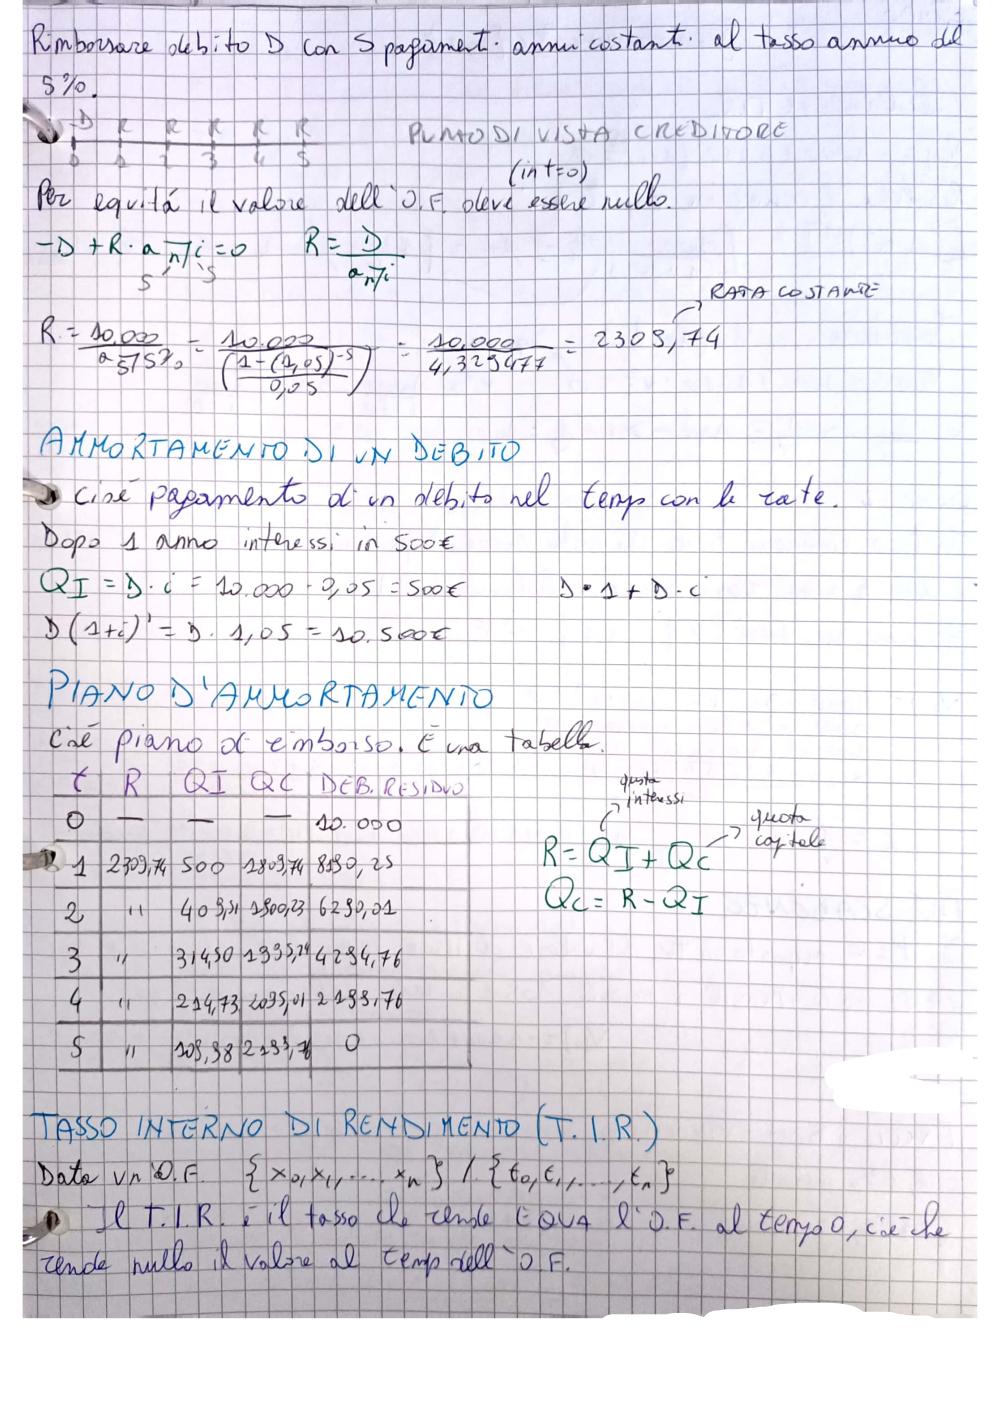 Rimborsare debito D con 5 pagament. annui costant. al tasso annuo del
5%.
-D R R R R R
0 1 2 3 4 5
PUNTO DI VISTA CREDITORE
(in t=0)
Per equitá il valore dell'O.F. deve essere nullo.
-D + R · a n┐i = 0 R = D / a n┐i
5 5
RATA COSTANTE
R = 10.000 / a 5┐5% = 10.000 / ((1-(1,05)^-5) / 0,05) = 10.000 / 4,329477 = 2309,74
AMMORTAMENTO DI UN DEBITO
Cioé pagamento di un debito nel temp con le rate.
Dopo 1 anno interessi in 500€
QI = D · i = 10.000 · 0,05 = 500€ D · 1 + D · i
D(1+i)' = D · 1,05 = 10.500€
PIANO D'AMMORTAMENTO
Cioé piano di rimborso. É una tabella.
t R QI QC DEB. RESIDUO
0 — — — 10.000
1 2309,74 500 1809,74 8190,25
2 " 409,51 1900,23 6290,01
3 " 314,50 1995,24 4294,76
4 " 214,73 2095,01 2199,76
5 " 109,98 2199,76 0
quota interessi
quota capitale
R = QI + QC
QC = R - QI
TASSO INTERNO DI RENDIMENTO (T.I.R.)
Data un O.F. {x0, x1, ..., xn} / {t0, t1, ..., tn}
Il T.I.R. è il tasso che rende EQUA l'O.F. al tempo 0, cioè che
rende nullo il valore al temp dell'O F.